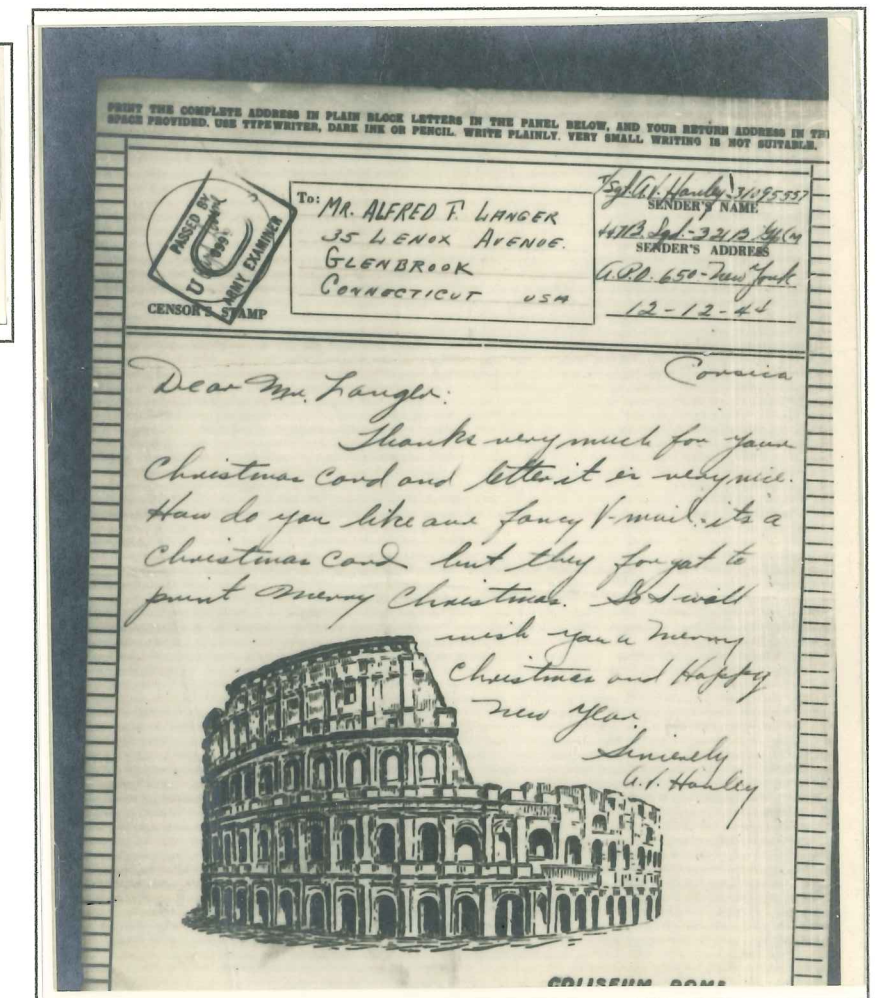 PRINT THE COMPLETE ADDRESS IN PLAIN BLOCK LETTERS IN THE PANEL BELOW, AND YOUR RETURN ADDRESS IN THE
SPACE PROVIDED. USE TYPEWRITER, DARK INK OR PENCIL. WRITE PLAINLY. VERY SMALL WRITING IS NOT SUITABLE.
PASSED BY
U
ARMY EXAMINER
CENSOR'S STAMP
To:
MR. ALFRED F. LANGER
35 LENOX AVENUE.
GLENBROOK
CONNECTICUT USA
T/Sgt. A.V. Hanley-31095557
SENDER'S NAME
SENDER'S ADDRESS
A.P.O. 650-New York
12-12-44
Corsica
Dear Mr. Langer:
Thanks very much for your
Christmas card and letter it is very nice.
How do you like our fancy V-mail-its a
Christmas card but they forgot to
print Merry Christmas. So I will
wish you a Merry
Christmas and Happy
New Year.
Sincerely
A.V. Hanley
COLISEUM ROME